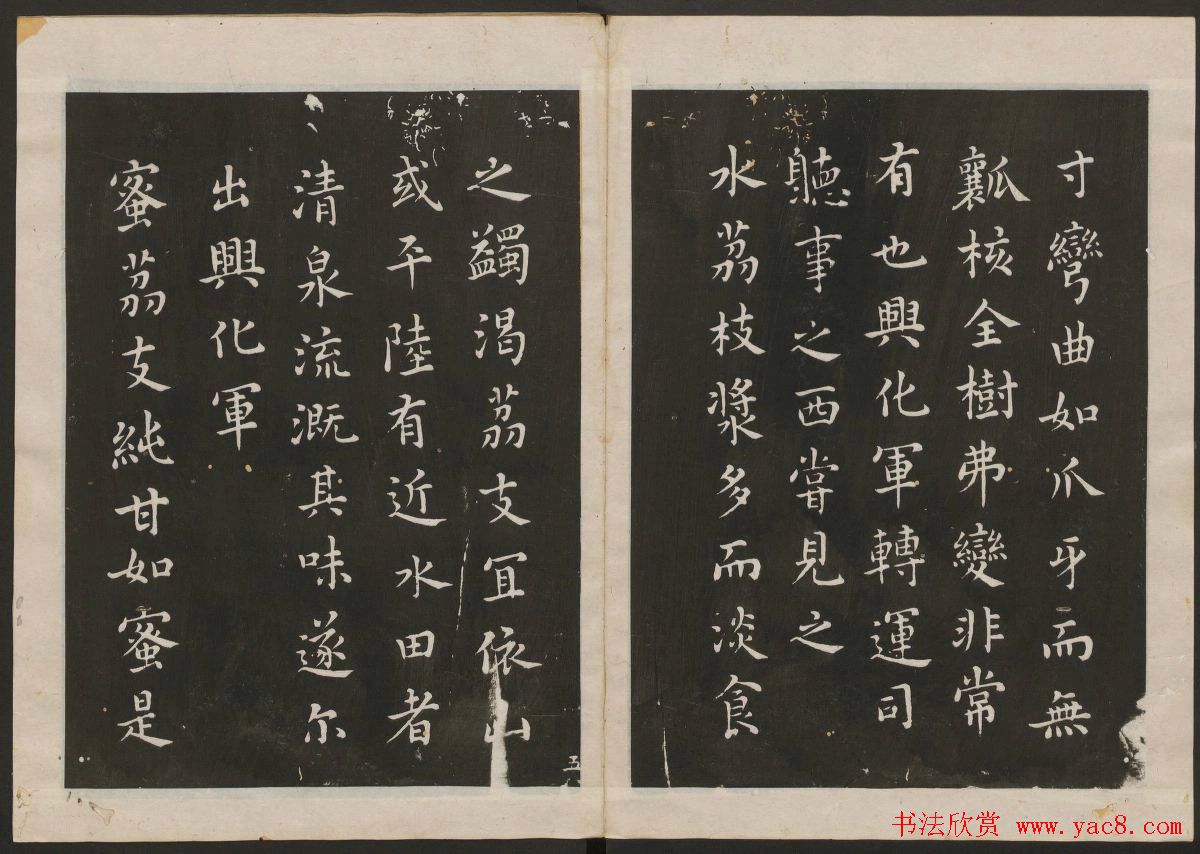 寸彎曲如爪牙而無
瓤核全樹弗變非常
有也興化軍轉運司
聽事之西嘗見之
水荔枝漿多而淡食
之蠲渴荔支宜依山
或平陸有近水田者
清泉流溉其味遂尔
出興化軍
蜜荔支純甘如蜜是
五
书法欣赏 www.yac8.com